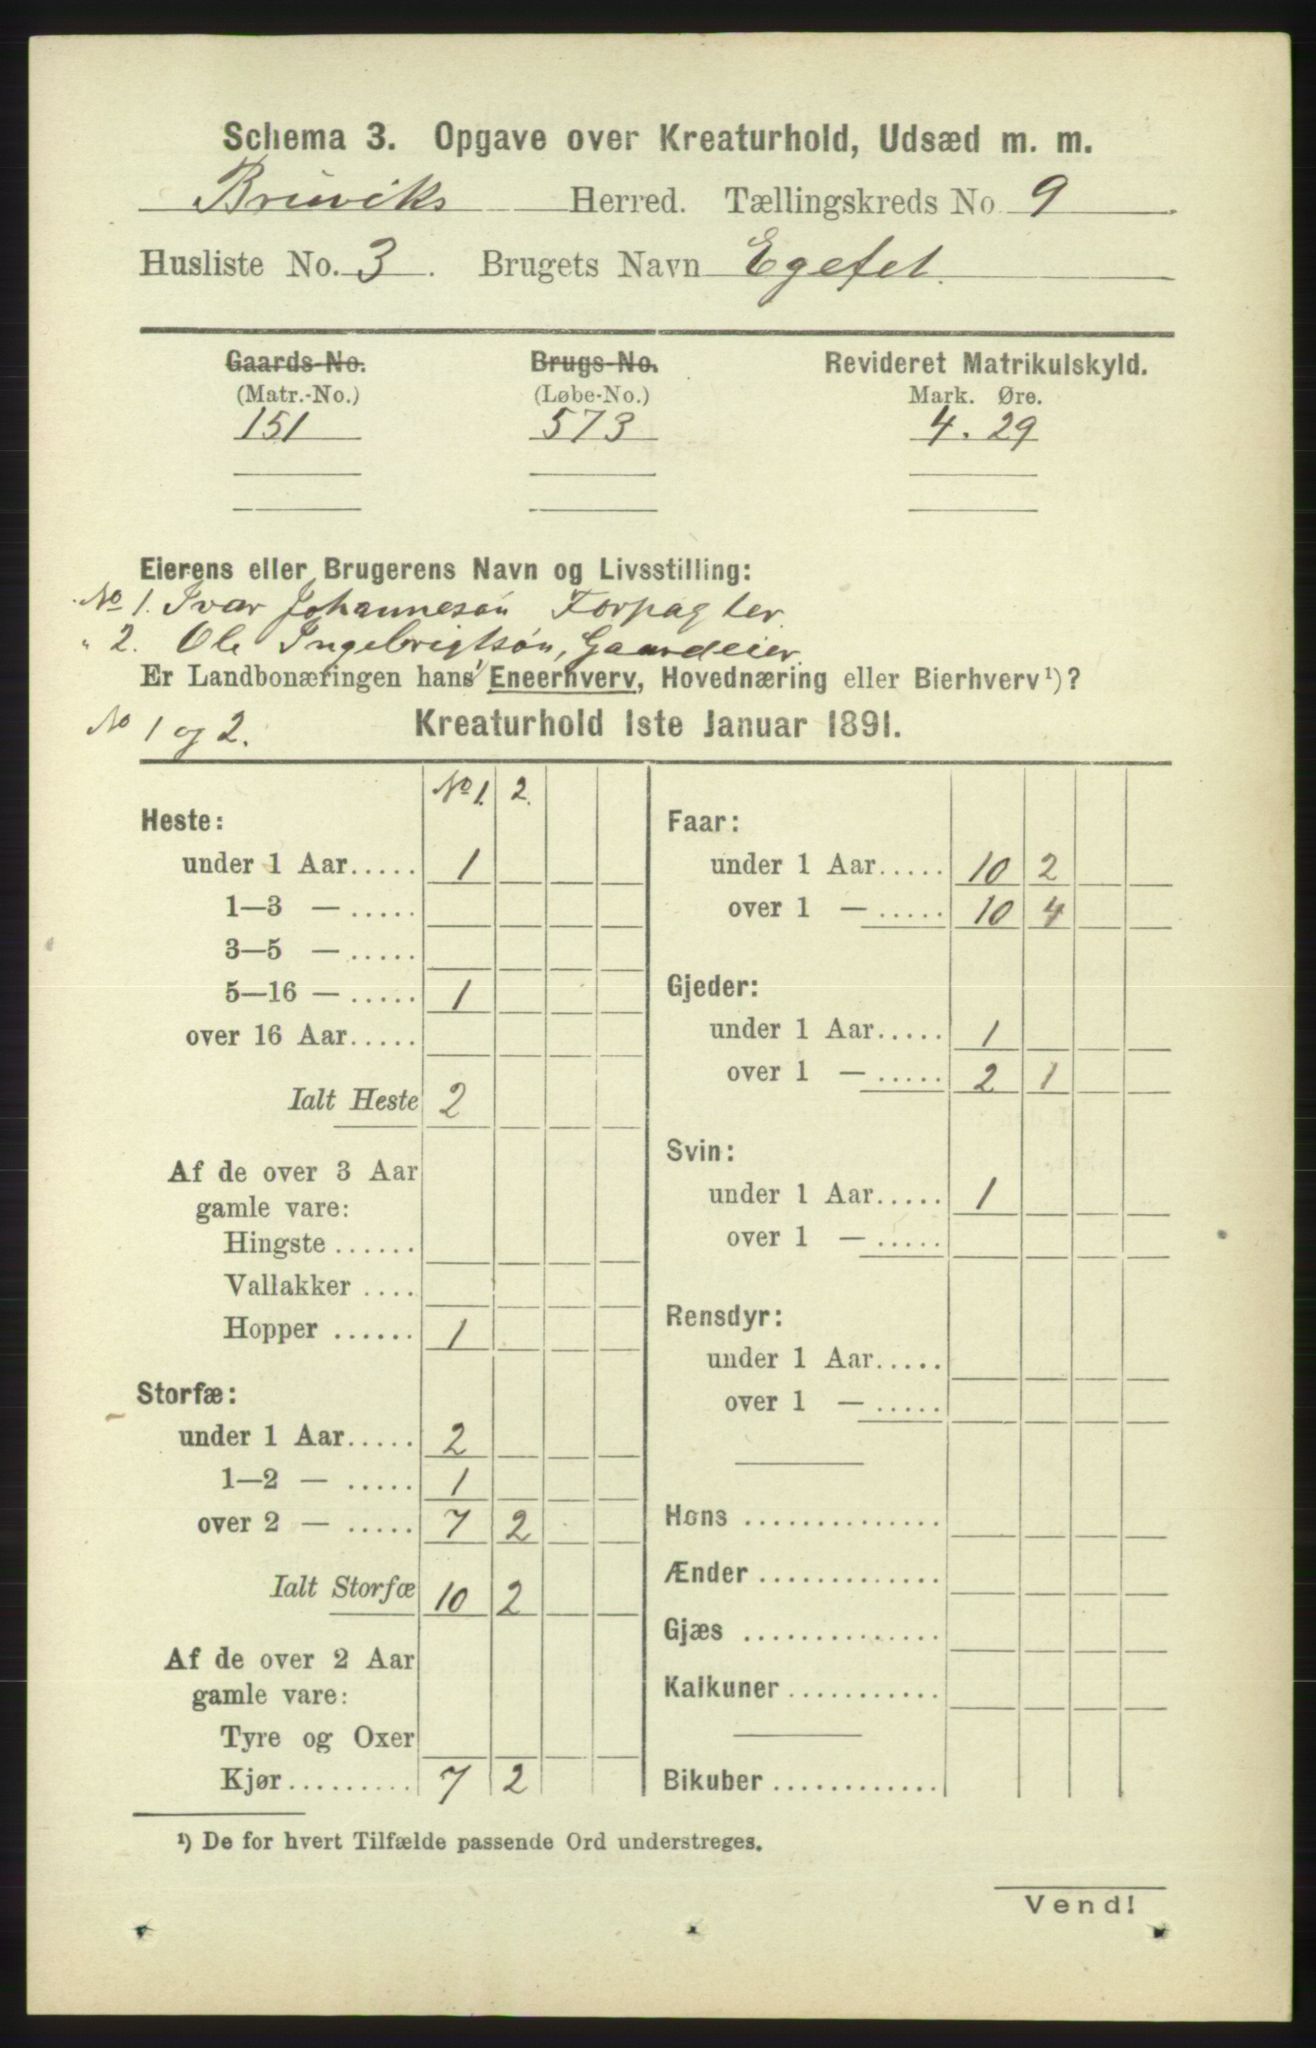 Schema 3. Opgave over Kreaturhold, Udsæd m. m.
Bruviks Herred. Tællingskreds No 9.
Husliste No. 3. Brugets Navn Egefet.
Gaards-No. Brugs-No. Revideret Matrikulskyld.
(Matr.-No.) (Løbe-No.) Mark. Øre.
151 573 4. 29
Eierens eller Brugerens Navn og Livsstilling:
No 1. Ivar Johannesøn Forpagter.
" 2. Ole Ingebrigtsøn, Gaardeier.
Er Landbonæringen hans Eneerhverv, Hovednæring eller Bierhverv¹)?
No 1 og 2.
Kreaturhold 1ste Januar 1891.
No 1. 2.
Heste:
under 1 Aar..... 1
1—3 — .....
3—5 — .....
5—16 — ..... 1
over 16 Aar.....
Ialt Heste 2
Af de over 3 Aar
gamle vare:
Hingste ......
Vallakker ....
Hopper ...... 1
Storfæ:
under 1 Aar..... 2
1—2 — ..... 1
over 2 — ..... 7 2
Ialt Storfæ 10 2
Af de over 2 Aar
gamle vare:
Tyre og Oxer
Kjør.......... 7 2
Faar:
under 1 Aar..... 10 2
over 1 — ..... 10 4
Gjeder:
under 1 Aar..... 1
over 1 — ..... 2 1
Svin:
under 1 Aar..... 1
over 1 — .....
Rensdyr:
under 1 Aar.....
over 1 — .....
Høns ..............
Ænder .............
Gjæs ..............
Kalkuner...........
Bikuber............
¹) De for hvert Tilfælde passende Ord understreges.
Vend!